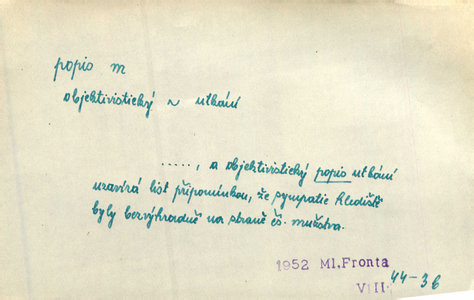 popis m
objektivistický ~ utkání
....., a objektivistický popis utkání
uzavírá list připomínkou, že sympatie hlediště
byly bezvýhradně na straně čs. mužstva.
1952 Ml.Fronta
VIII 44-36